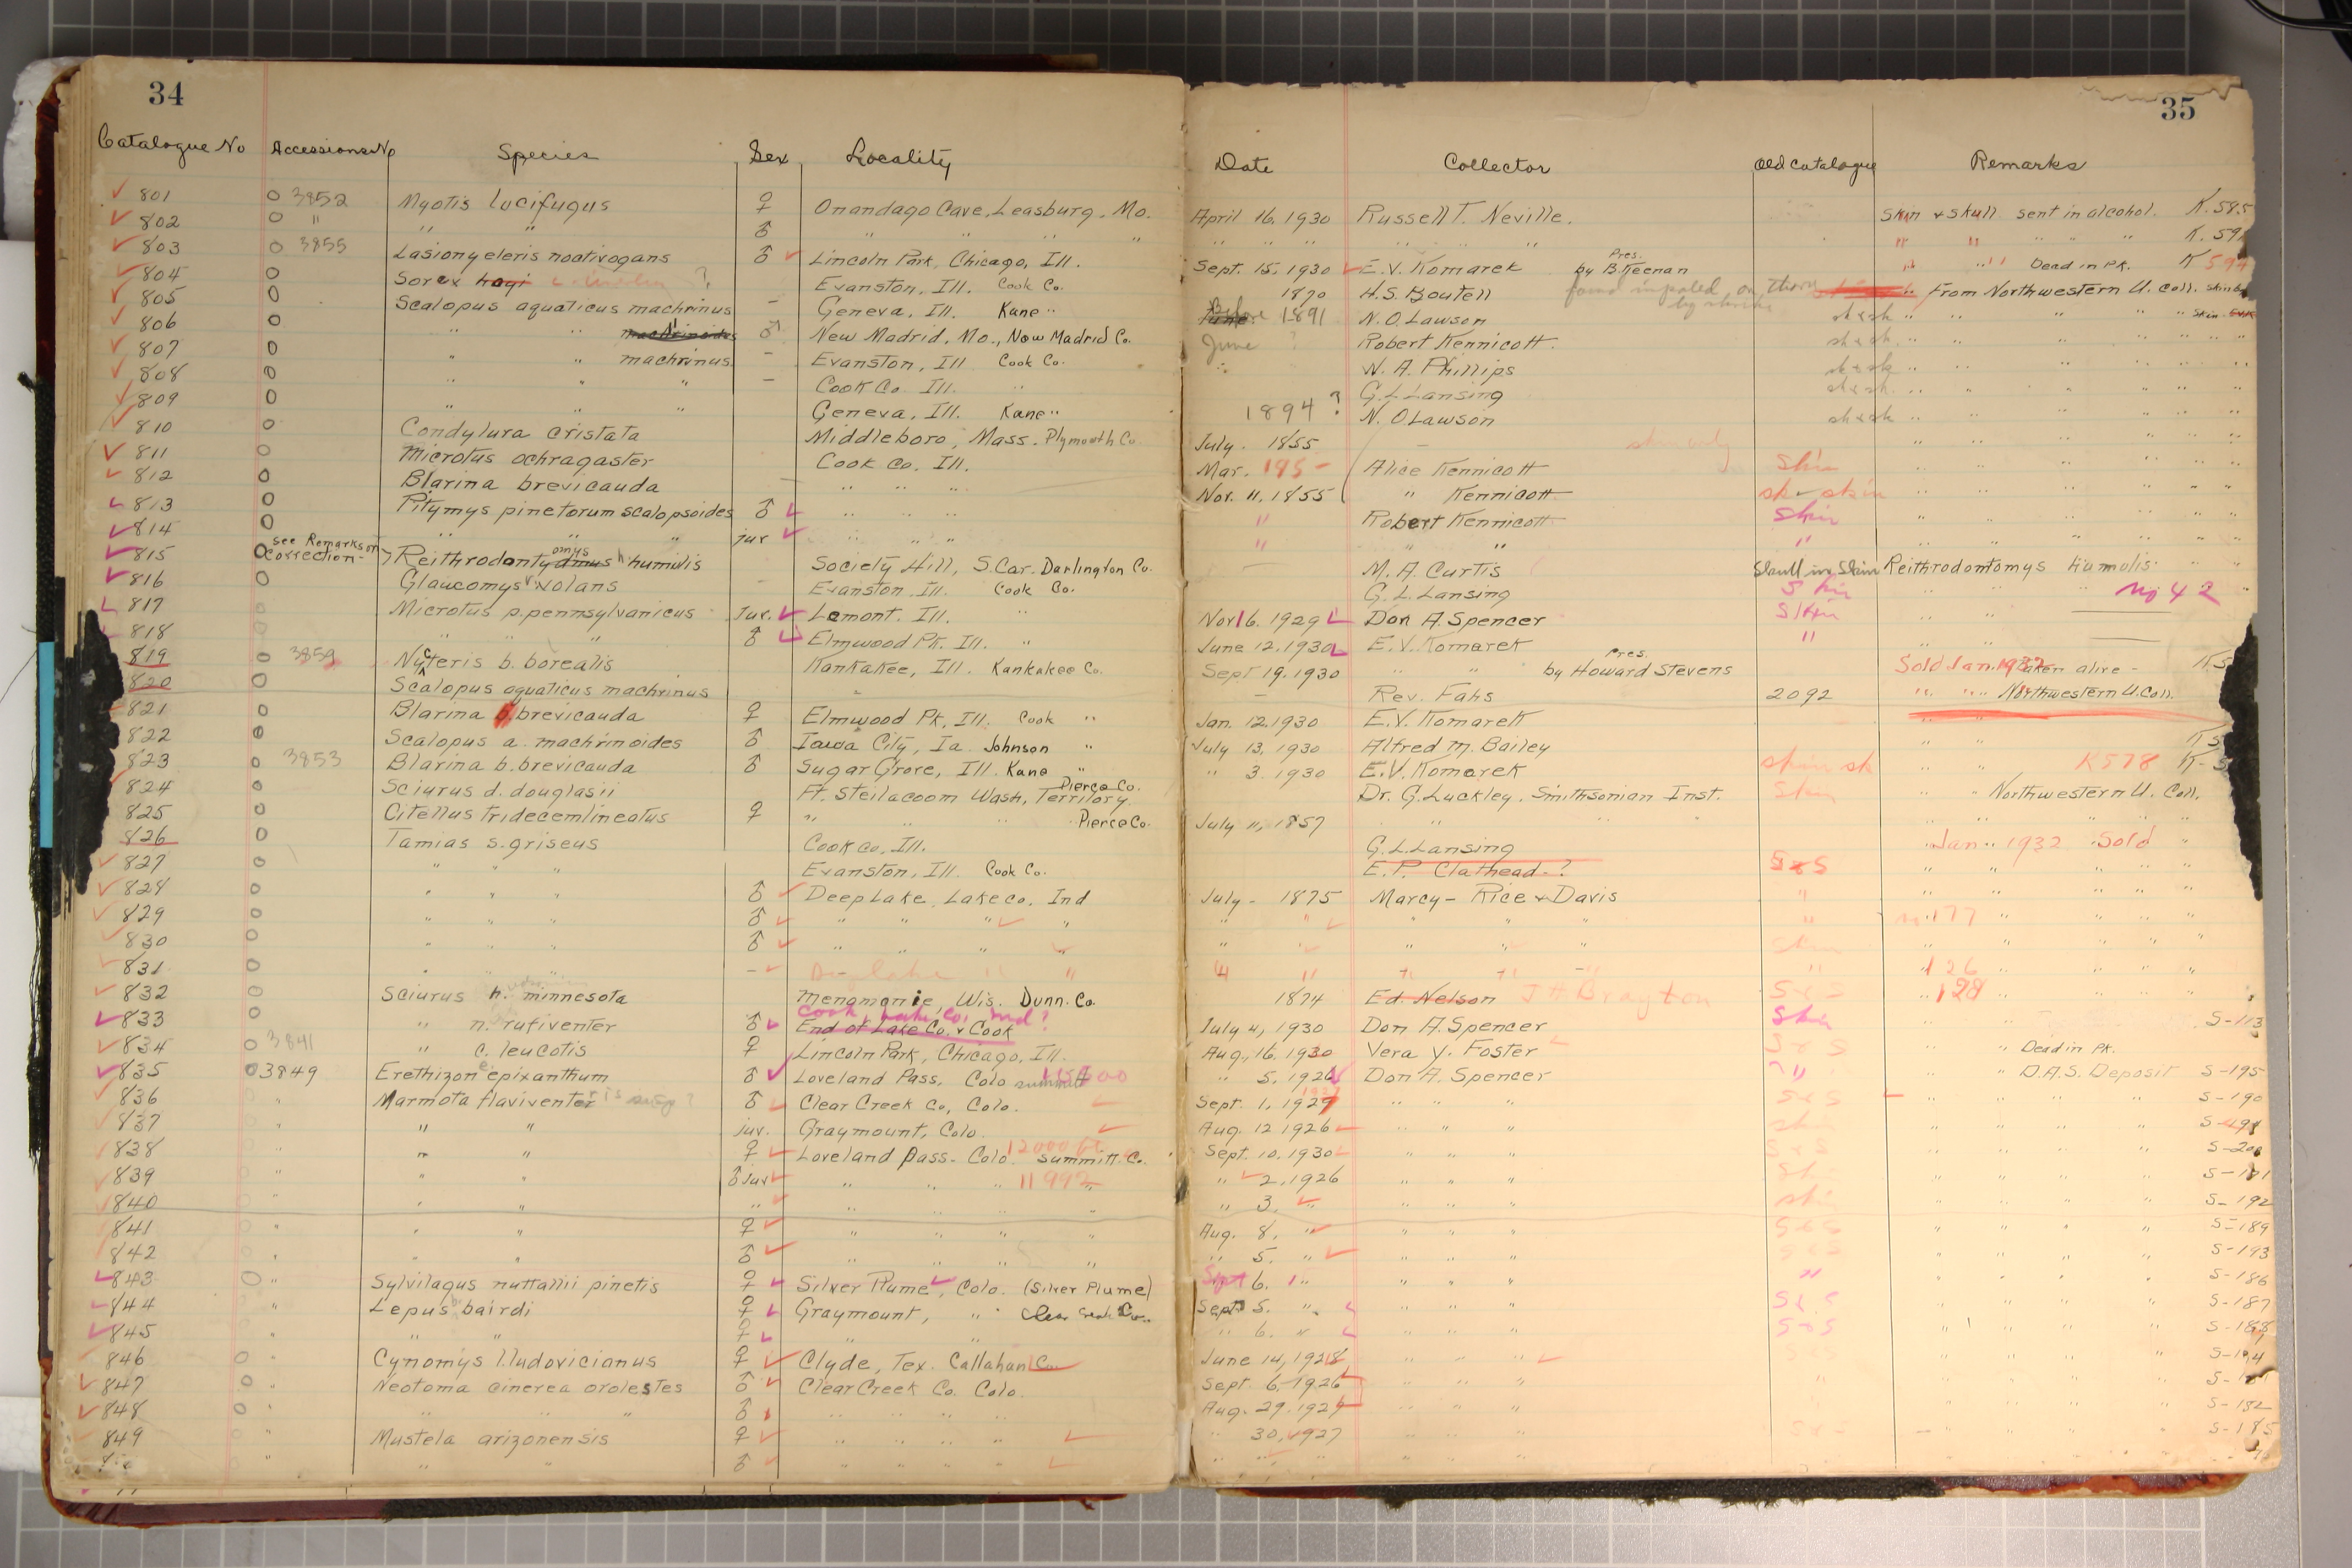 34
35
Catalogue No Accessions No Species Sex Locality Date Collector Old Catalogue Remarks
801 3852 Myotis lucifugus ♀ Onandago Cave, Leasburg, Mo. April 16, 1930 Russell T. Neville. Skin & skull sent in alcohol. K.585
802 " " " ♂ " " " " " " " " " " " " " " " K.59
803 3855 Lasionycteris noctivogans ♂ Lincoln Park, Chicago, Ill. Sept. 15, 1930 E.V. Komarek Pres. by B. Keenan " " Dead in Pk. K 594
804 Sorex hoyi ? Evanston, Ill. Cook Co. 1870 H.S. Boutell found impaled on thorn by shrike From Northwestern U. Coll.
805 Scalopus aquaticus machrinus - Geneva, Ill. Kane " Before June 1891 N. O. Lawson sk & sk " " " " " Skin
806 " " machrinoides ♂ New Madrid, Mo., New Madrid Co. June ? Robert Kennicott. sk & sk " " " "
807 " " machrinus - Evanston, Ill Cook Co. N. A. Phillips sk & sk " " " "
808 " " " - Cook Co. Ill. " G. L. Lansing sk & sk " " " "
809 " " " Geneva, Ill. Kane " 1894 ? N. O. Lawson sk & sk " " " "
810 Condylura cristata Middleboro, Mass. Plymouth Co. July - 1855 - skin only " " " "
811 Microtus ochragaster Cook Co. Ill. Mar. 185- Alice Kennicott Skin " " " "
812 Blarina brevicauda - " " " Nov. 11, 1855 " Kennicott sk - skin " " " "
813 Pitymys pinetorum scalopsoides ♂ " " " " Robert Kennicott Skin " " " "
814 " " " juv " " " " " " " " " " "
815 see Remarks on correction - Reithrodontyomys dmus h. humilis Society Hill, S. Car. Darlington Co. - M. A. Curtis Skull in Skin Reithrodontomys humulis " "
816 Glaucomys v. volans - Evanston, Ill. Cook Co. G. L. Lansing Skin " " " No 42 "
817 Microtus p. pennsylvanicus Juv. Lemont. Ill. " Nov 16. 1929 Don A. Spencer Skin " "
818 " " " ♂ Elmwood Pk. Ill. " June 12, 1930 E.V. Komarek " " "
819 3859 Nycteris b. borealis Kankakee, Ill. Kankakee Co. Sept 19, 1930 " " Pres. by Howard Stevens Sold Jan. 1932 taken alive - K.5
820 Scalopus aquaticus machrinus - - Rev. Fahs 2092 " " " Northwestern U. Coll.
821 Blarina b. brevicauda ♀ Elmwood Pk, Ill. Cook " Jan. 12, 1930 E.V. Komarek " "
822 Scalopus a. machrinoides ♂ Iowa City, Ia. Johnson " July 13, 1930 Alfred M. Bailey " " K.5
823 3853 Blarina b. brevicauda ♂ Sugar Grove, Ill. Kane " " 3. 1930 E.V. Komarek skin sk " " K578 K-5
824 Sciurus d. douglasii Ft. Steilacoom Wash. Territory. Pierce Co. Dr. G. Luckley. Smithsonian Inst. Skin " " Northwestern U. Coll.
825 Citellus tridecemlineatus ♀ " " " Pierce Co. July 11, 1857 " " " " " " " " "
826 Tamias s. griseus Cook Co, Ill. G. L. Lansing " Jan " 1932 Sold "
827 " " " Evanston, Ill. Cook Co. E. P. Clathead - ? S & S " " " " "
828 " " " ♂ Deep Lake, Lake Co. Ind July - 1875 Marcy - Rice & Davis " " " " " "
829 " " " ♂ " " " " " " " " " " No. 177 " " " "
830 " " " ♂ " " " " " " " " " skin " " " " "
831 " " " - Dp lake " " " " " " " " 126 " " " "
832 Sciurus h. minnesota Menamonie, Wis. Dunn. Co. 1874 Ed. Nelson J H Brayton S & S " 128 "
833 " n. rufiventer ♂ End of Lake Co. & Cook Cook, Lake Co, Ind ? July 4, 1930 Don A. Spencer Skin S-113
834 3841 " c. leucotis ♀ Lincoln Park, Chicago, Ill. Aug. 16, 1930 Vera Y. Foster S & S " " Dead in Pk.
835 3849 Erethizon e. epixanthum ♂ Loveland Pass, Colo Summit " 5, 1926 Don A. Spencer " " " D.A.S. Deposit S-195
836 " Marmota flaviventer ? ♂ Clear Creek Co, Colo. Sept. 1, 1927 " " " S & S " " " " S-190
837 " " " juv. Graymount, Colo. Aug. 12 1926 " " " sk " " " "
838 " " " ♀ Loveland Pass - Colo. 12000 ft Summitt Co. Sept. 10, 1930 " " " S & S " " " " S-200
839 " " " ♂ Juv " " " 11992 " " 2, 1926 " " " " " " " S-191
840 " " " " " " " " " 3. " " " " sk " " " " S-192
841 " " " ♀ " " " " Aug. 8, " " " " S & S " " " " S-189
842 " " " ♂ " " " " " 5. " " " " S & S " " " " S-193
843 " Sylvilagus nuttallii pinetis ♀ Silver Plume, Colo. (Silver Plume) Sept 6. " " " " " " " " " S-186
844 " Lepus bairdi ♀ Graymount, " Clear Creek Co. Sept 5. " " " " S & S " " " " S-187
845 " " " ♀ " " " 6. " " " " S & S " " " " S-188
846 " Cynomys l. ludovicianus ♀ Clyde, Tex. Callahan Co. June 14, 1928 " " " S & S " " " "
847 " Neotoma cinerea orolestes ♂ Clear Creek Co. Colo. Sept. 6, 1926 " " " " " " " "
848 " " " " ♂ " " " " Aug. 29, 1927 " " " " " " " S-182
849 " Mustela arizonensis ♀ " " " " " 30, 1927 " " " S & S " " " " S-185
" " " ♂ " " " " " " " " " " " " "